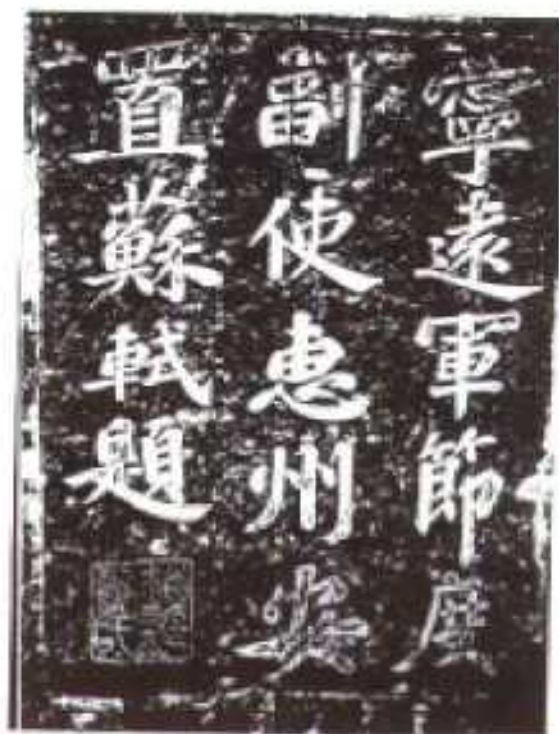 寧遠軍節度
副使惠州安
置蘇軾題